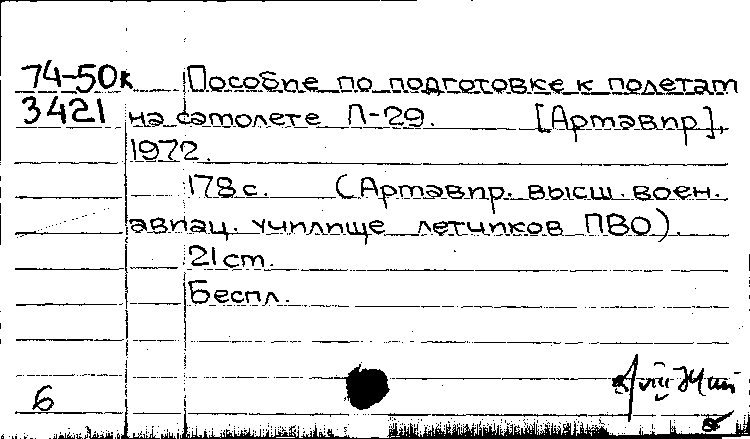 74-50к Пособие по подготовке к полетам
3421 на самолете Л-29. [Армавир],
1972.
178 с. (Армавир. высш. воен.
авиац. училище летчиков ПВО).
21 см.
Беспл.
6